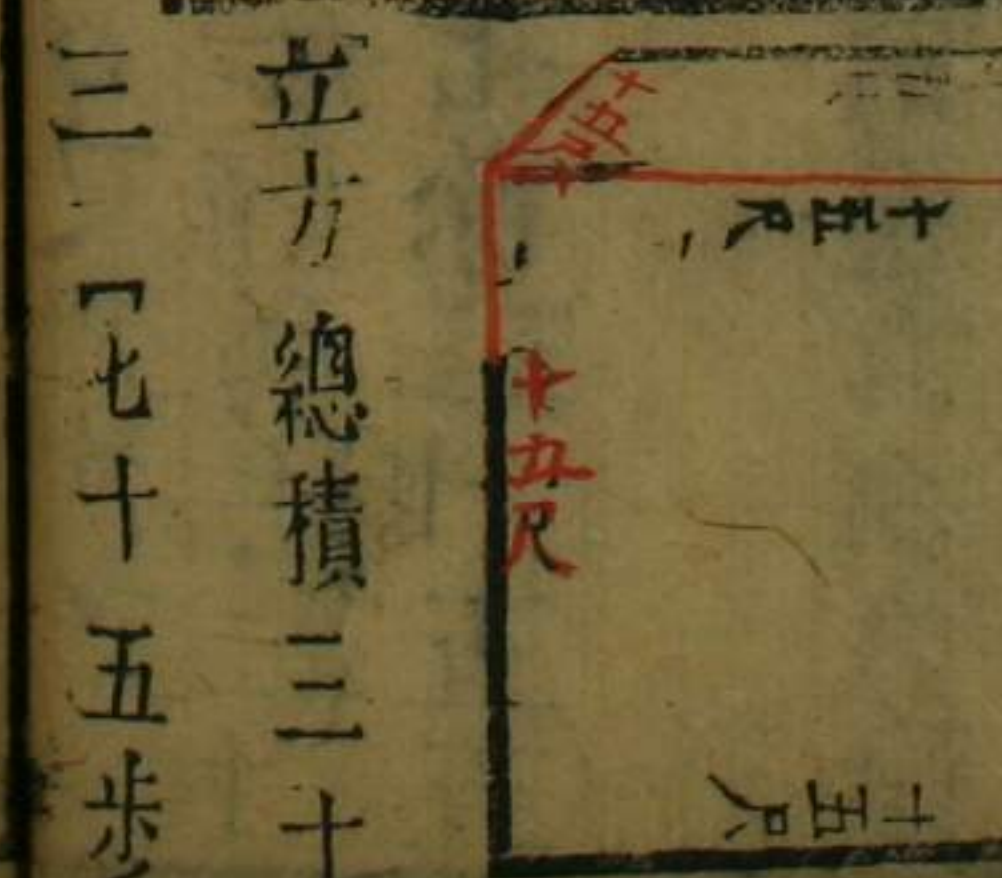 十五尺
十五尺
十五尺
十五尺
立方總積三十
三七十五步